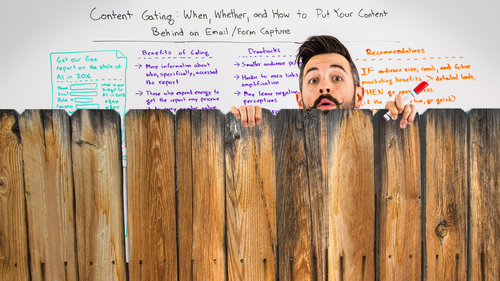 Content Gating: When, Whether, and How to Put Your Content
Behind an Email/Form Capture
Get our free
report on the state of
AI in 2016
Name
Email
Role
Benefits of Gating
→ More information about
who, specifically, accessed
the report
→ Those who expend energy to
get the report may perceive
Drawbacks
→ Smaller audience
→ Harder to earn links
amplification
→ May leave negative
perceptions
Recommendations
IF audience size, reach, and future
marketing benefits > detailed leads,
THEN go